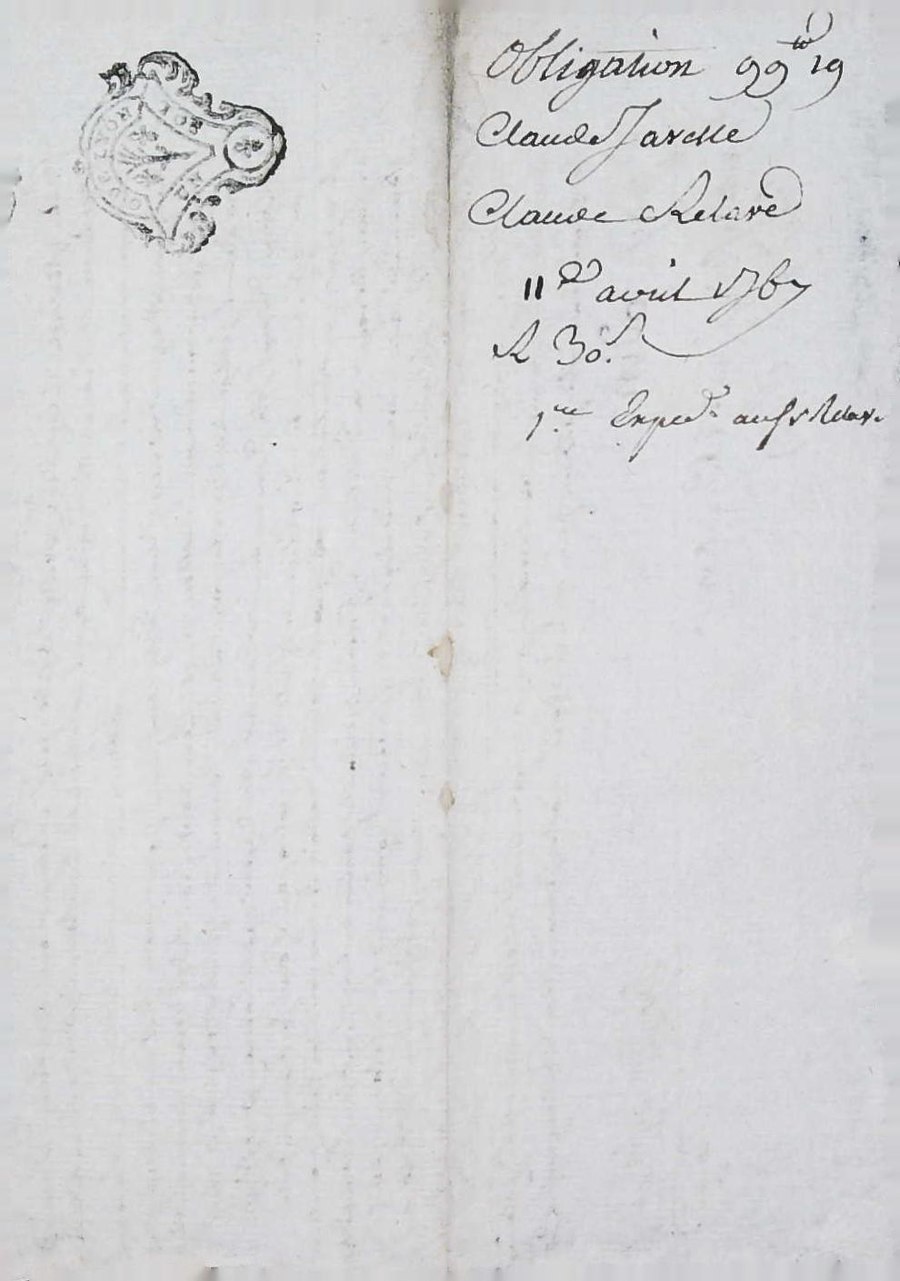 Obligation 99tt 19
Claude Javelle
Claude Relave
11e avril 1767
R 30s
1ere Exped.